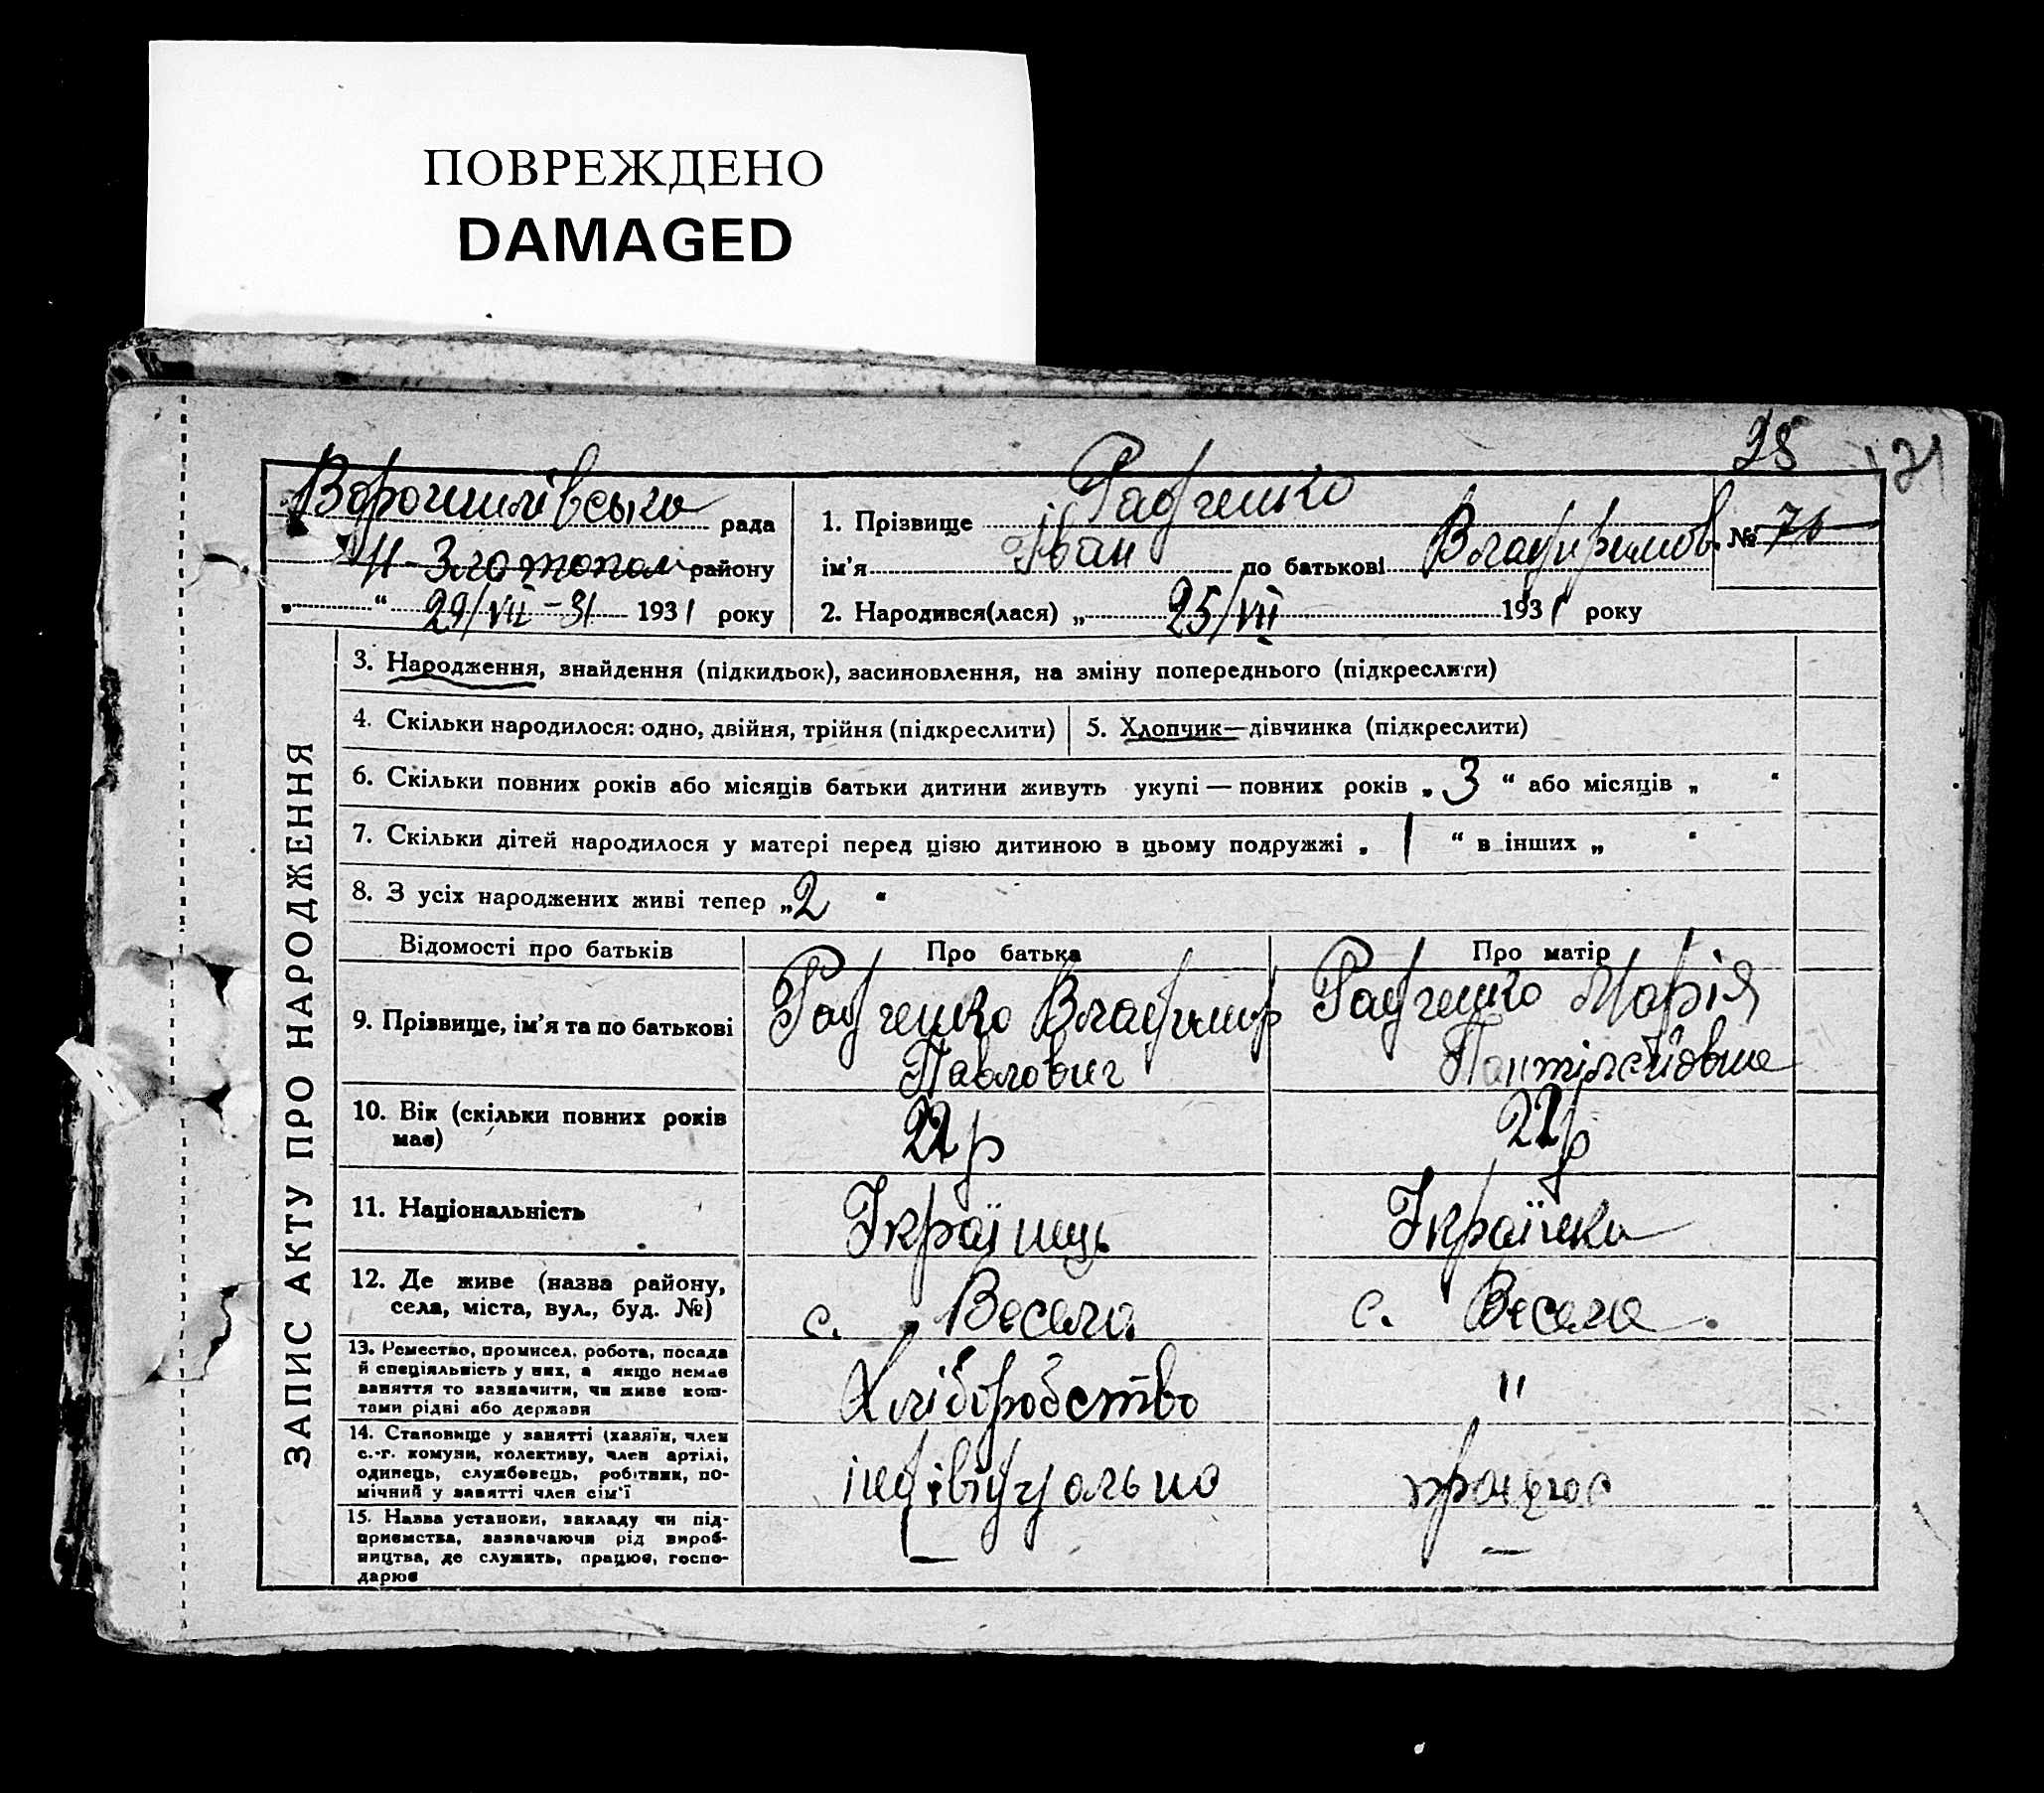 ПОВРЕЖДЕНО
DAMAGED
25 121
Ворошилівська рада
Н-Златополь району
„ “ 29/VII-31 1931 року
1. Прізвище Радченко
ім’я Іван по батькові Владимиров. № 71
2. Народився(лася) „ 25/VII 1931 року
ЗАПИС АКТУ ПРО НАРОДЖЕННЯ
3. Народження, знайдення (підкидьок), засиновлення, на зміну попереднього (підкреслити)
4. Скільки народилося: одно, двійня, трійня (підкреслити) 5. Хлопчик—дівчинка (підкреслити)
6. Скільки повних років або місяців батьки дитини живуть укупі — повних років „ 3 “ або місяців „ “
7. Скільки дітей народилося у матері перед цією дитиною в цьому подружжі „ 1 “ в інших „ “
8. З усіх народжених живі тепер „ 2 “
Відомості про батьків Про батька Про матір
9. Прізвище, ім’я та по батькові Радченко Владимир Радченко Марія
Павлович Пантілейовна
10. Вік (скільки повних років 22 р 22 р
має)
11. Національність Українець Українка
12. Де живе (назва району,
села, міста, вул., буд. №) с. Весела с. Веселе.
13. Ремество, промисел, робота, посада
й спеціяльність у них, а якщо немає
заняття то зазначити, чи живе кош- Хліборобство "
тами рідні або держави
14. Становище у занятті (хазяїн, член
с.-г. комуни, колективу, член артілі,
одинець, службовець, робітник, по- індівідуально працює
мічний у занятті член сім’ї
15. Назва установи, закладу чи під-
приємства, зазначаючи рід вироб-
ництва, де служить, працює, госпо- — —
дарює